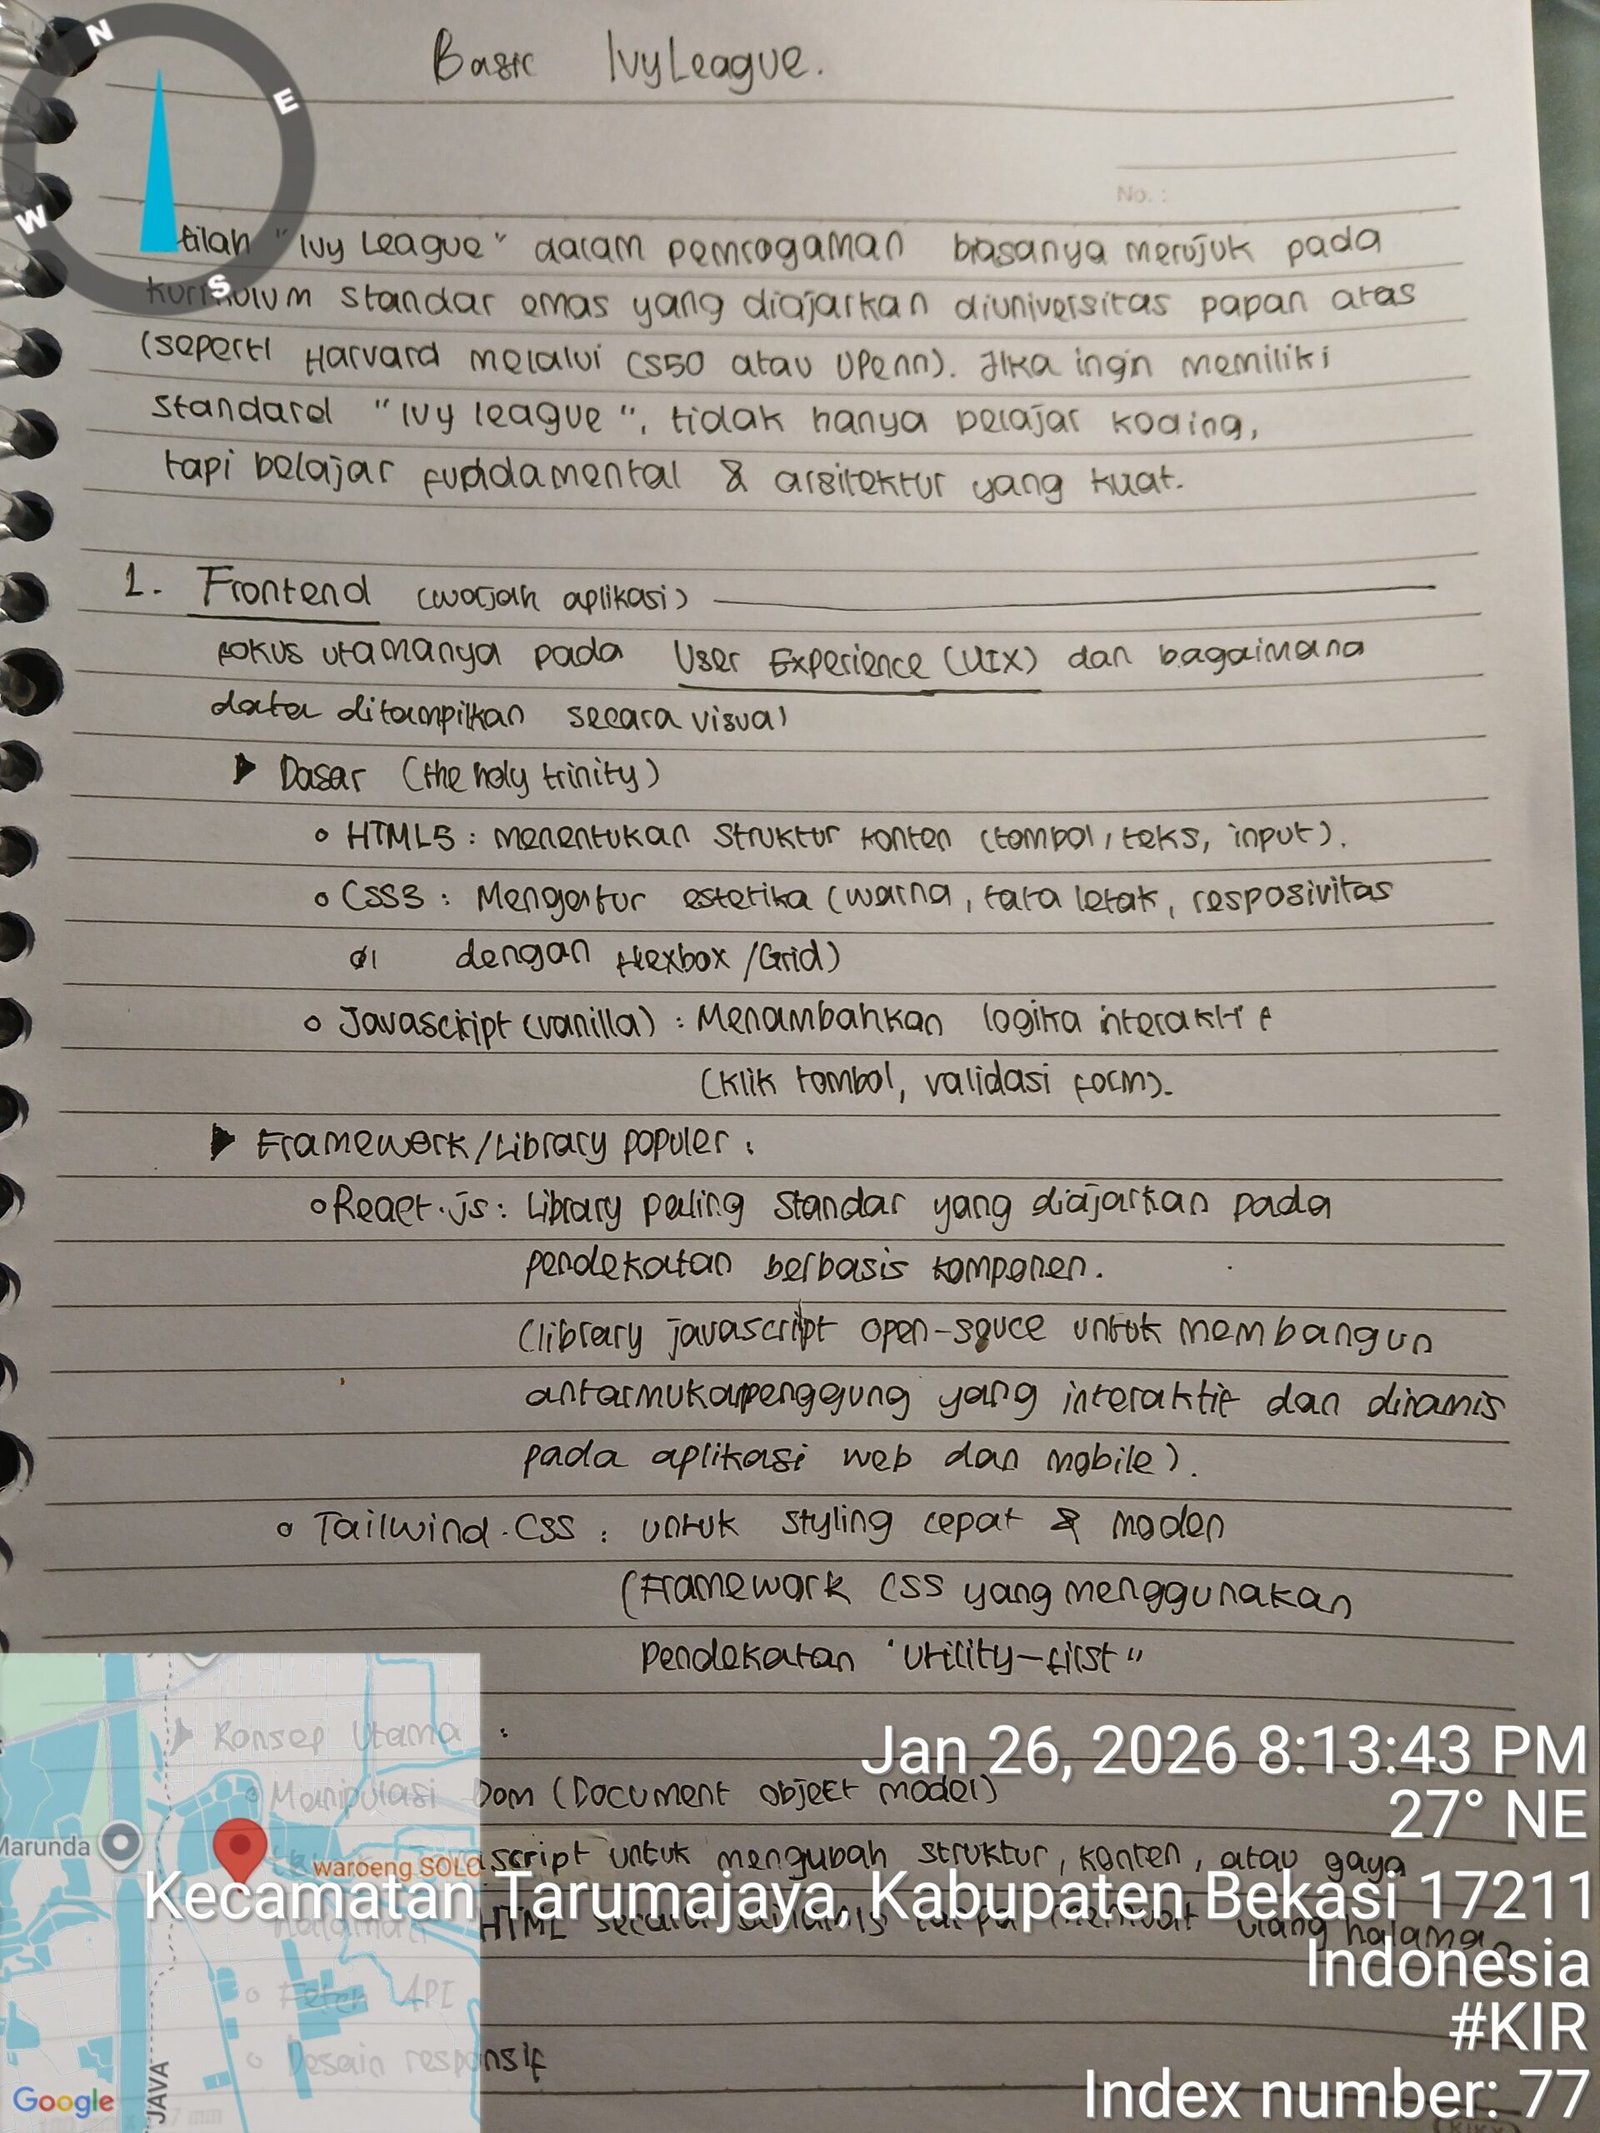 Basic IvyLeague.
No. :
N
E
W
S
tilah "Ivy League" dalam pemrogaman biasanya merujuk pada
kurikulum standar emas yang diajarkan diuniversitas papan atas
(seperti Harvard melalui CS50 atau UPenn). Jika ingin memiliki
standard "Ivy league", tidak hanya belajar koding,
tapi belajar fundamental & arsitektur yang kuat.
1. Frontend (wajah aplikasi)
fokus utamanya pada User Experience (UIX) dan bagaimana
data ditampilkan secara visual
Dasar (the holy trinity)
HTML5 : menentukan struktur konten (tombol, teks, input).
CSS3 : Mengatur estetika (warna, tata letak, resposivitas
dengan flexbox /Grid)
Javascript (vanilla) : Menambahkan logika interaktif
(klik tombol, validasi form).
Framework/Library populer :
React.js : Library paling standar yang diajarkan pada
pendekatan berbasis komponen.
(library javascript open-souce untuk membangun
antarmuka penggung yang interaktif dan dinamis
pada aplikasi web dan mobile).
Tailwind.CSS : untuk styling cepat & moden
(Framework CSS yang menggunakan
Pendekatan 'utility-first"
Konsep Utama :
Manipulasi Dom (Document object model)
script untuk mengubah struktur, konten, atau gaya
HTML secara tanpa memuat ulang halaman
Fetch API
Desain responsif
Marunda
waroeng SOLO
JAVA
Google
Jan 26, 2026 8:13:43 PM
27° NE
Kecamatan Tarumajaya, Kabupaten Bekasi 17211
Indonesia
#KIR
Index number: 77